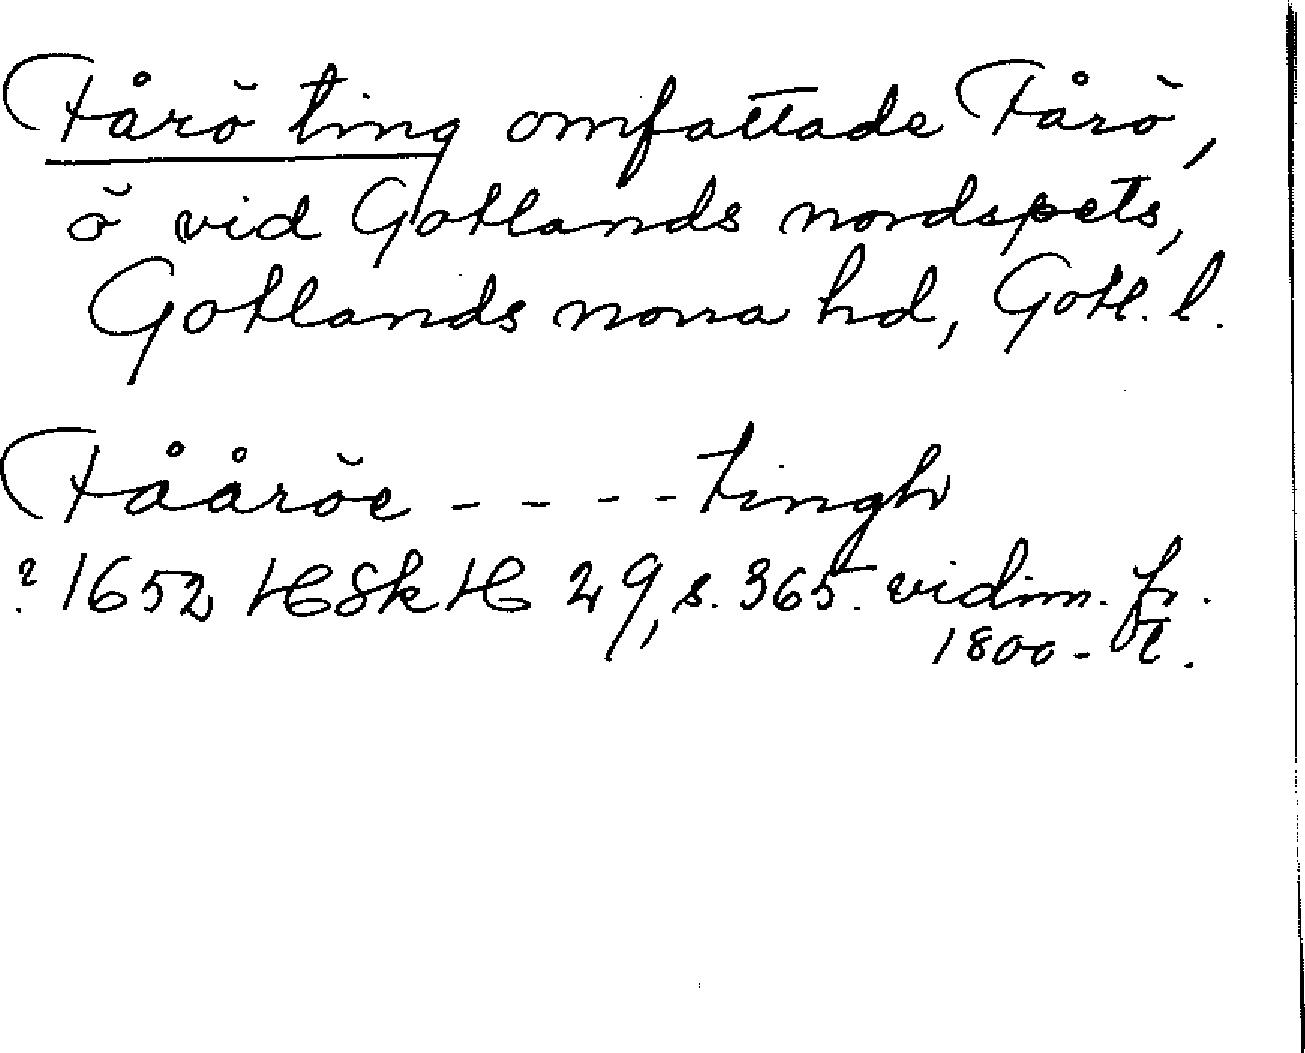 Fårö ting omfattade Fårö,
ö vid Gotlands nordspets,
Gotlands norra hd, Gotl. l.
Fååröe - - - - tingh
? 1652 HSkH 29, s. 365. vidim. fr.
1800-t.